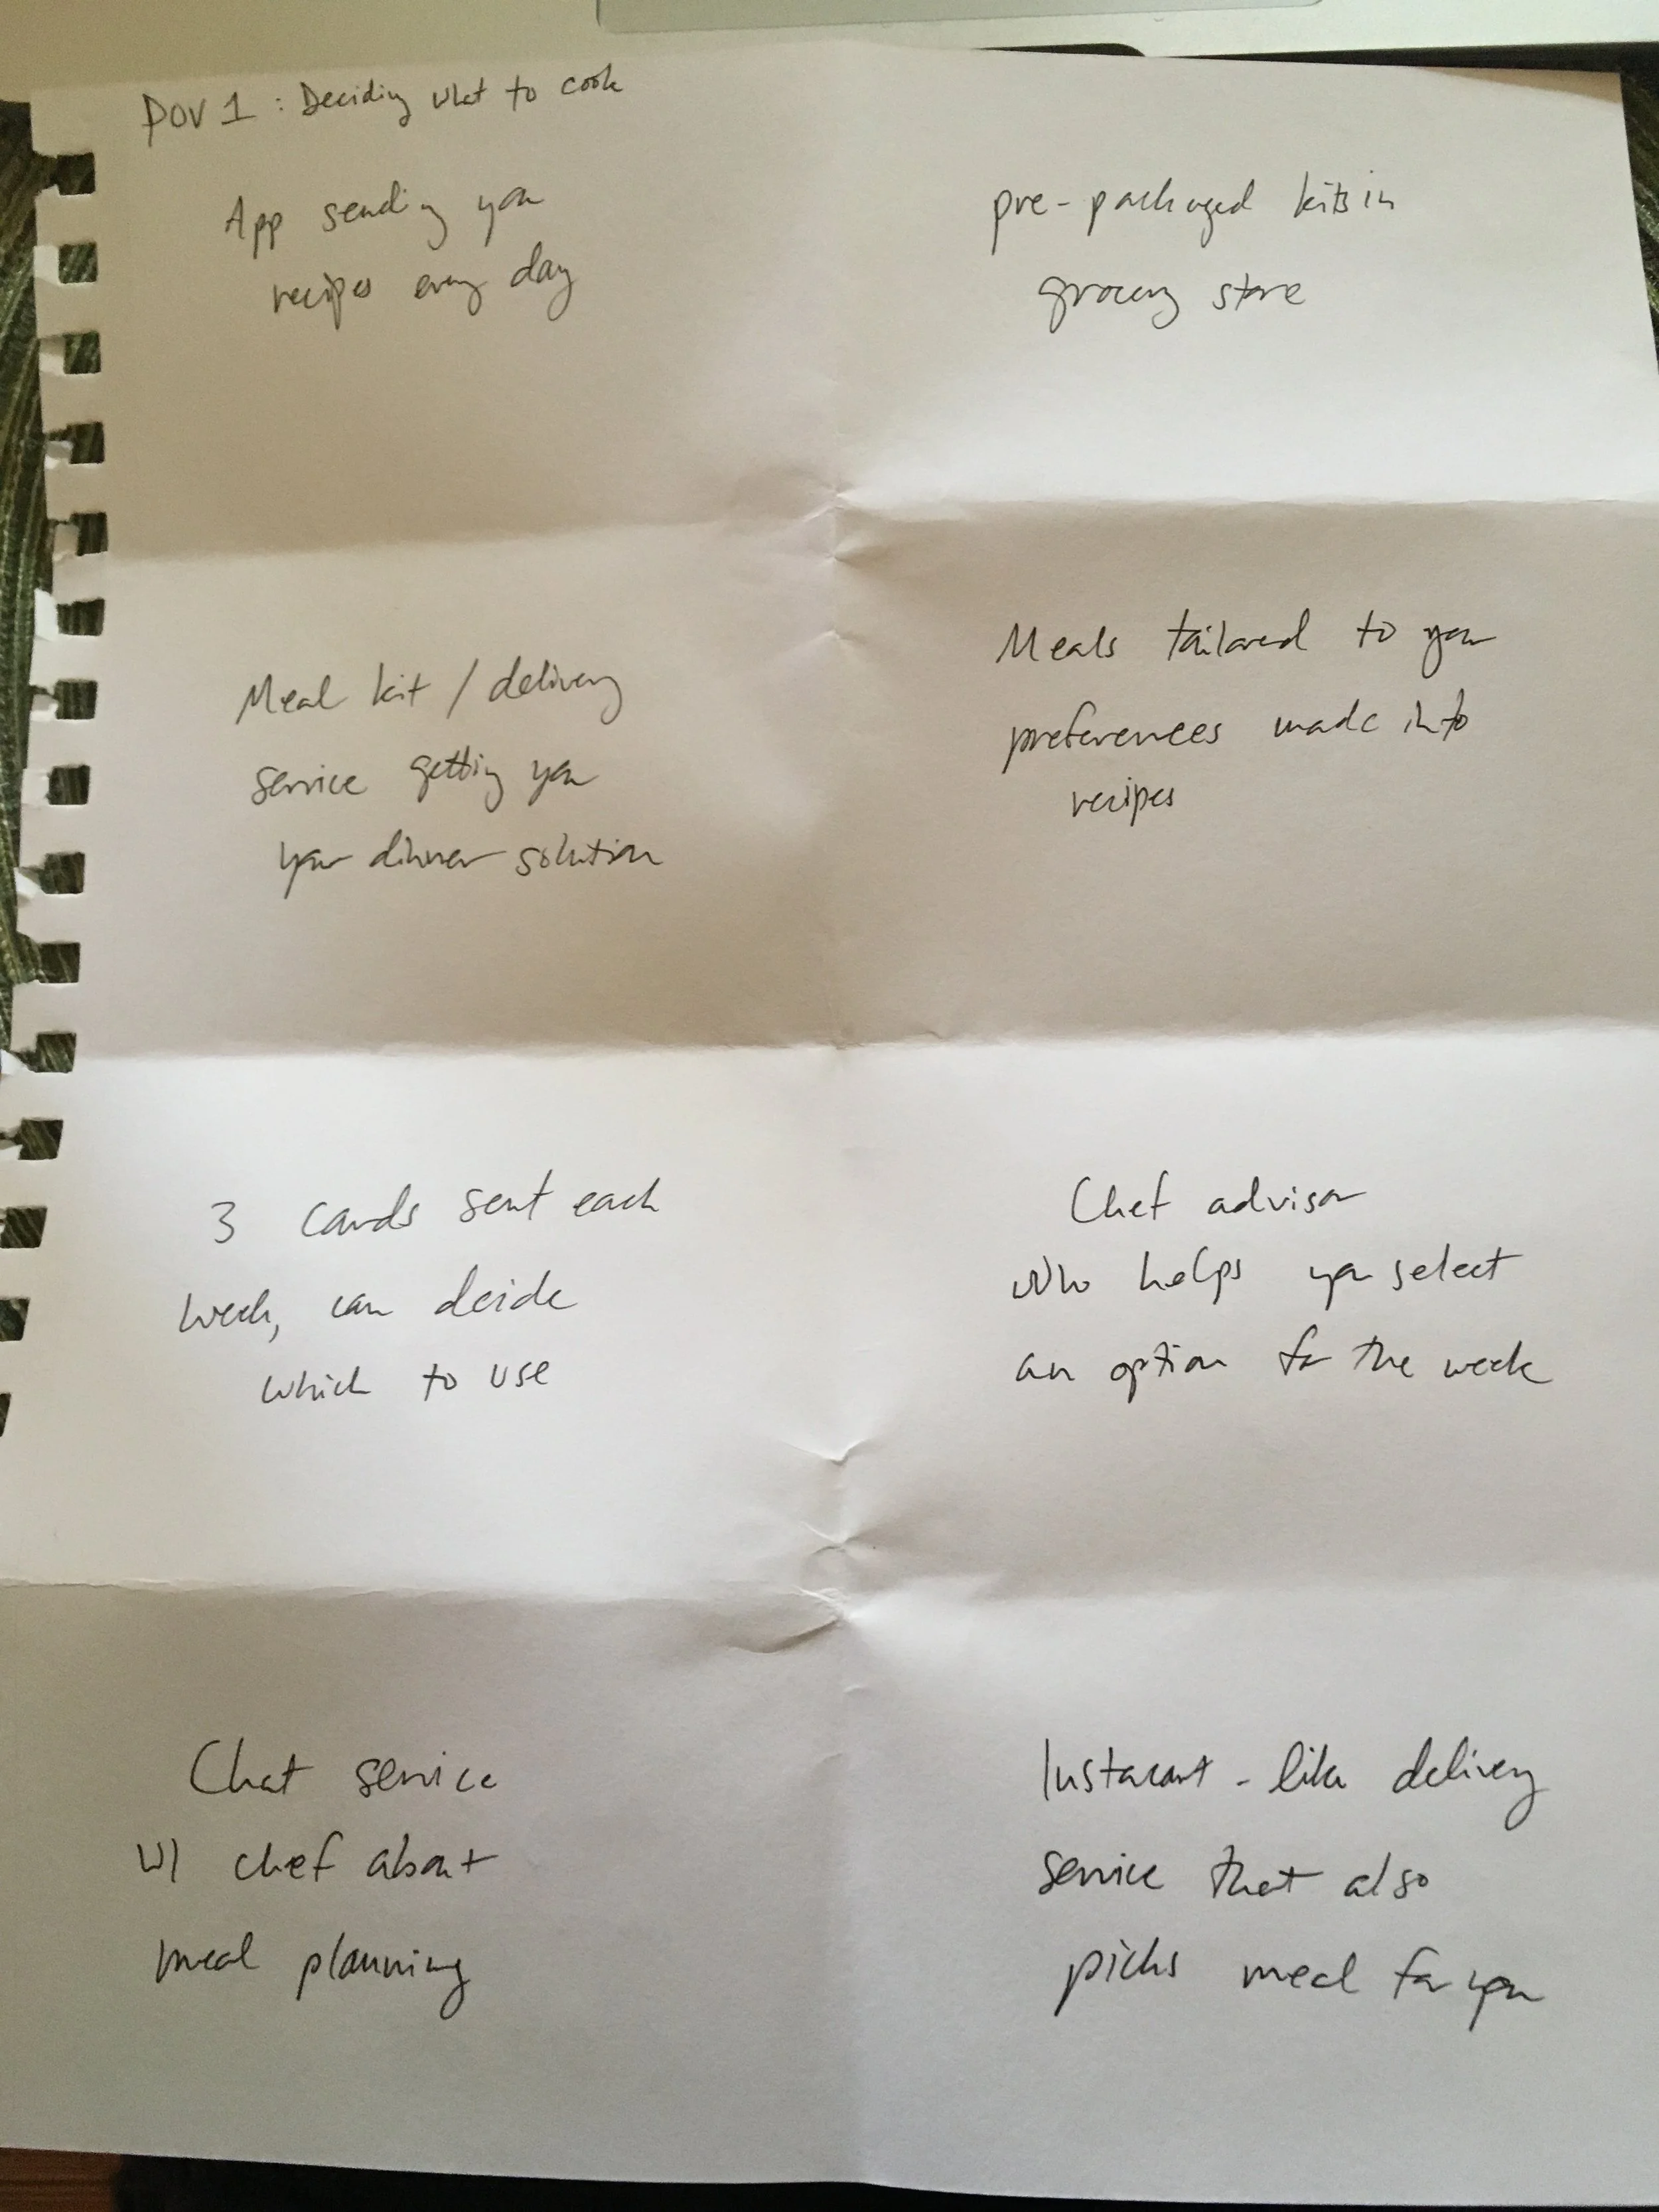 POV 1 : Deciding what to cook
App sending you
recipes every day
pre-packaged kits in
grocery store
Meal kit / delivery
service getting you
your dinner solution
Meals tailored to your
preferences made into
recipes
3 cards sent each
week, can decide
which to use
Chef advisor
who helps you select
an option for the week
Chat service
w/ chef about
meal planning
Instacart - like delivery
service that also
picks meal for you